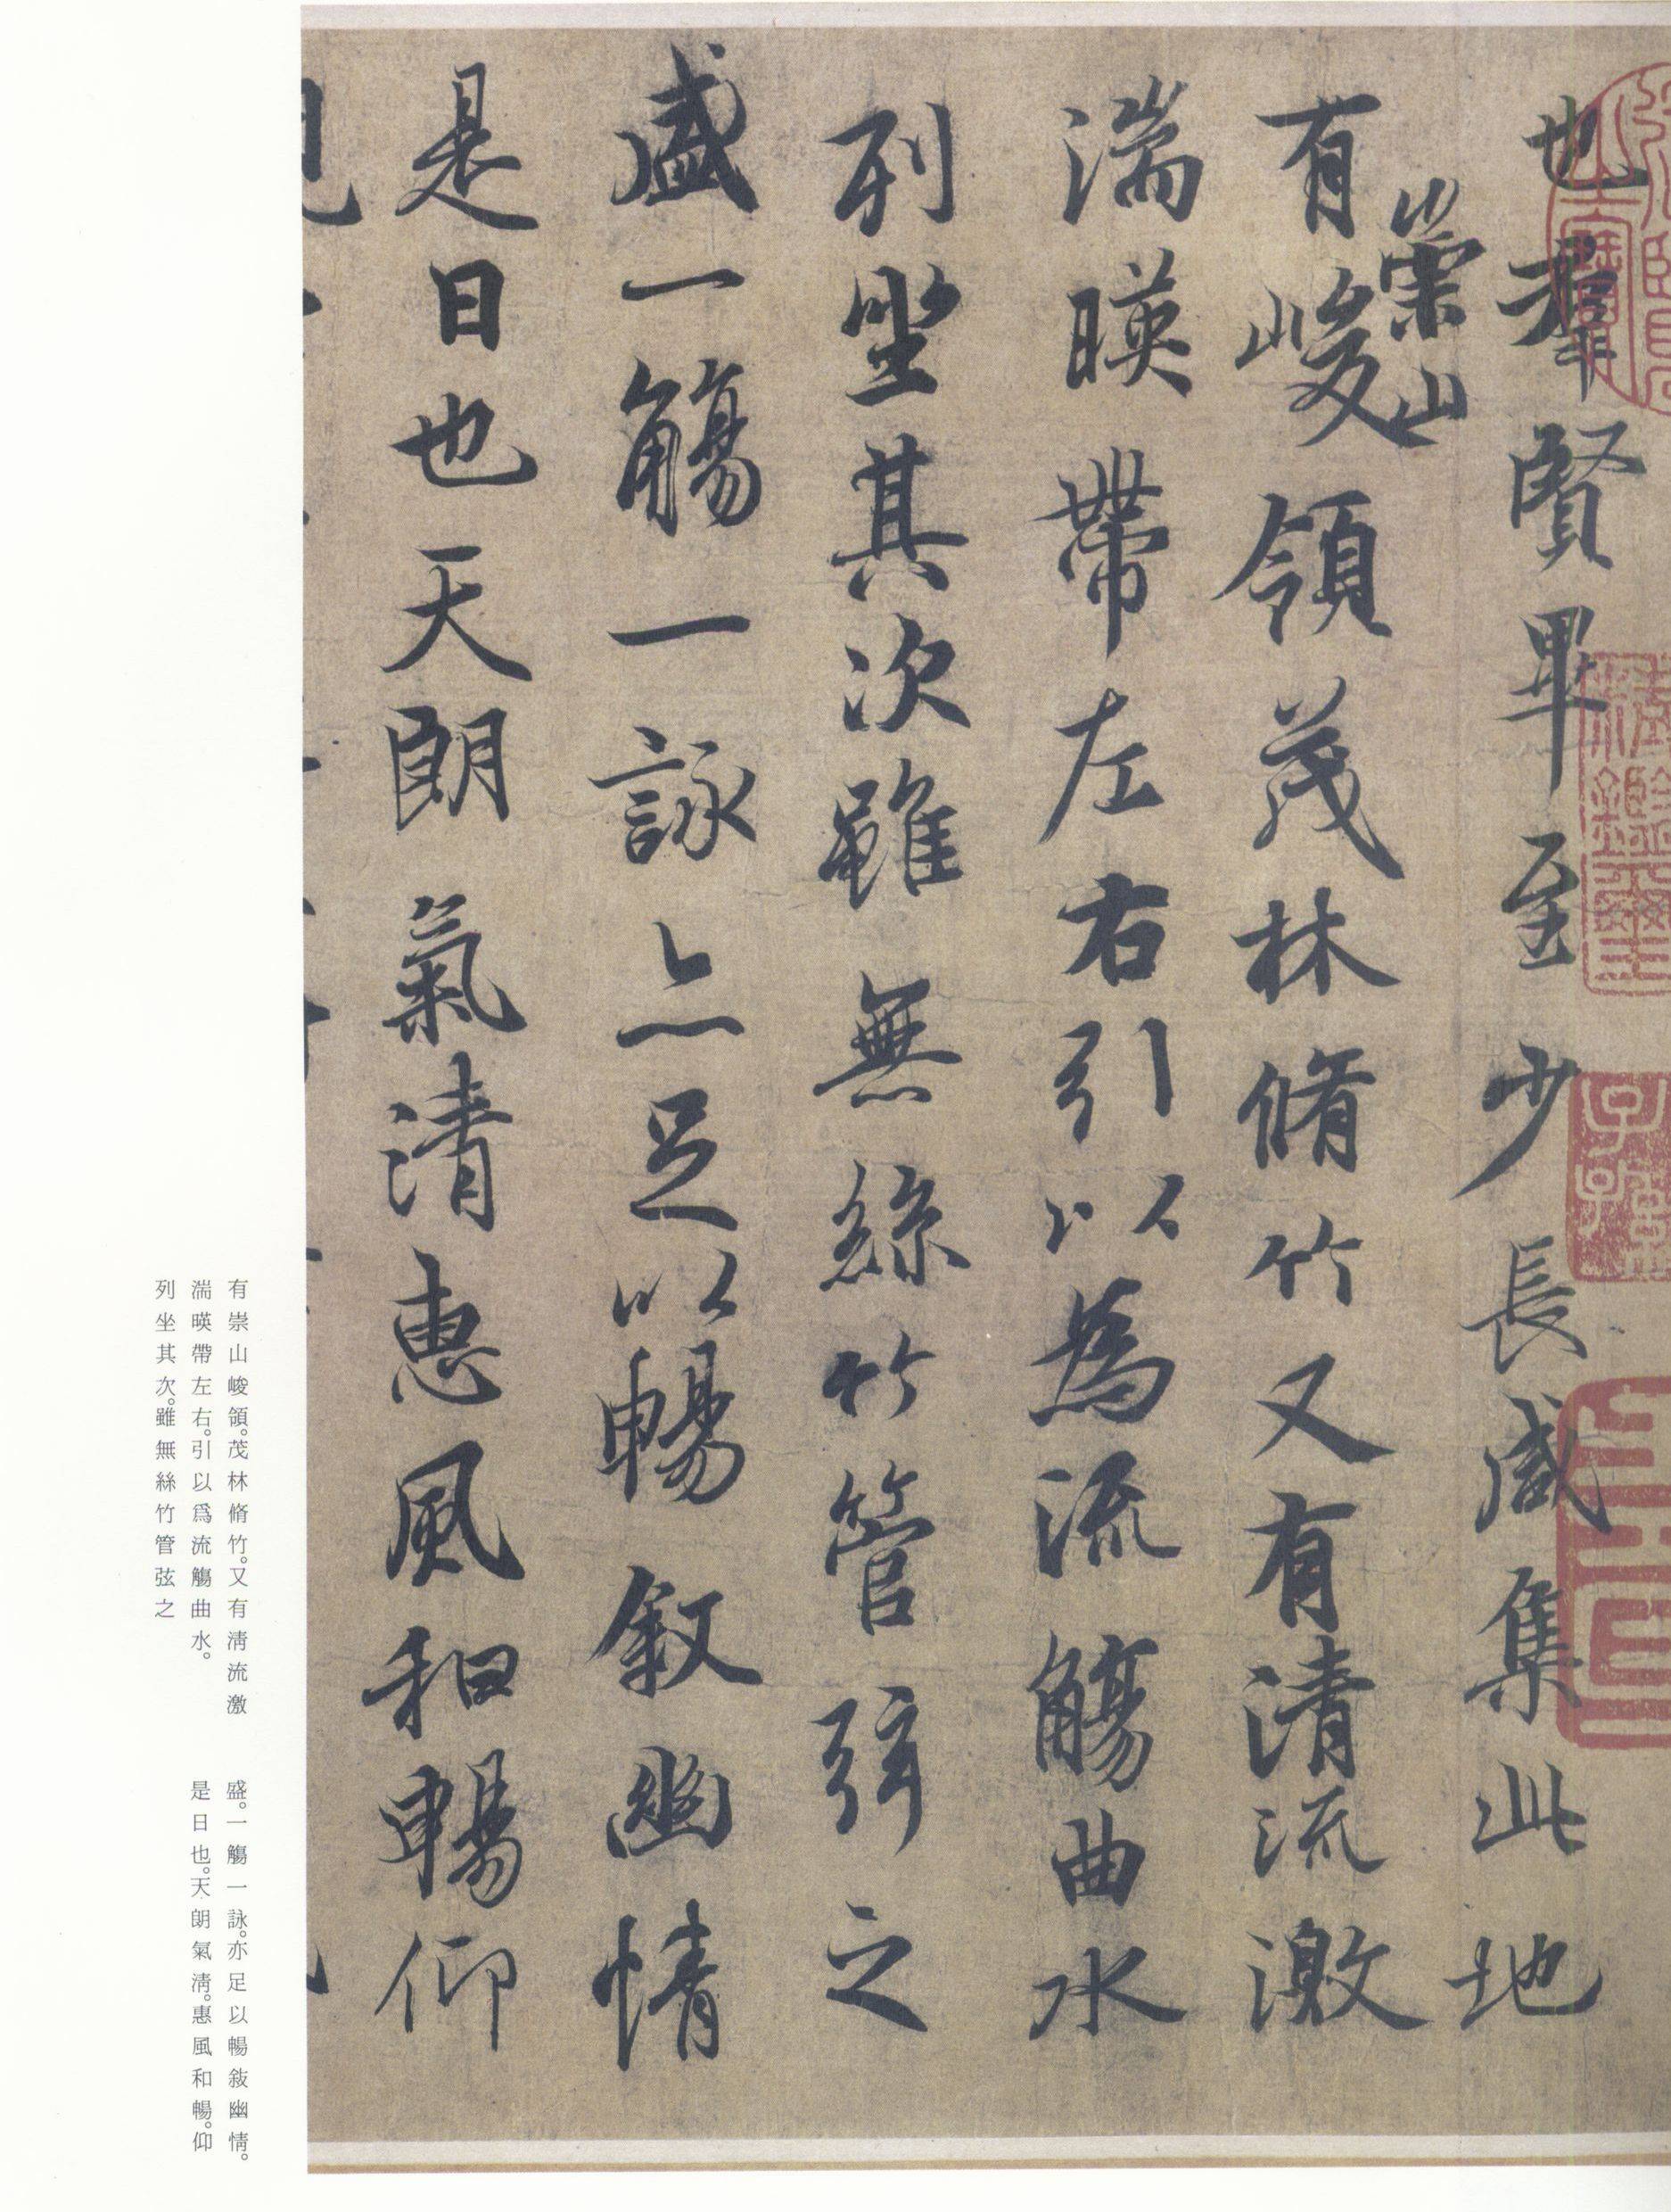 也羣賢畢至少長咸集此地
有崇山峻領茂林脩竹又有清流激
湍暎帶左右引以為流觴曲水
列坐其次雖無絲竹管弦之
盛一觴一詠亦足以暢敘幽情
是日也天朗氣清惠風和暢仰
有崇山峻領。茂林脩竹。又有清流激
湍暎帶左右。引以爲流觴曲水。
列坐其次。雖無絲竹管弦之
盛。一觴一詠。亦足以暢敍幽情。
是日也。天朗氣清。惠風和暢。仰